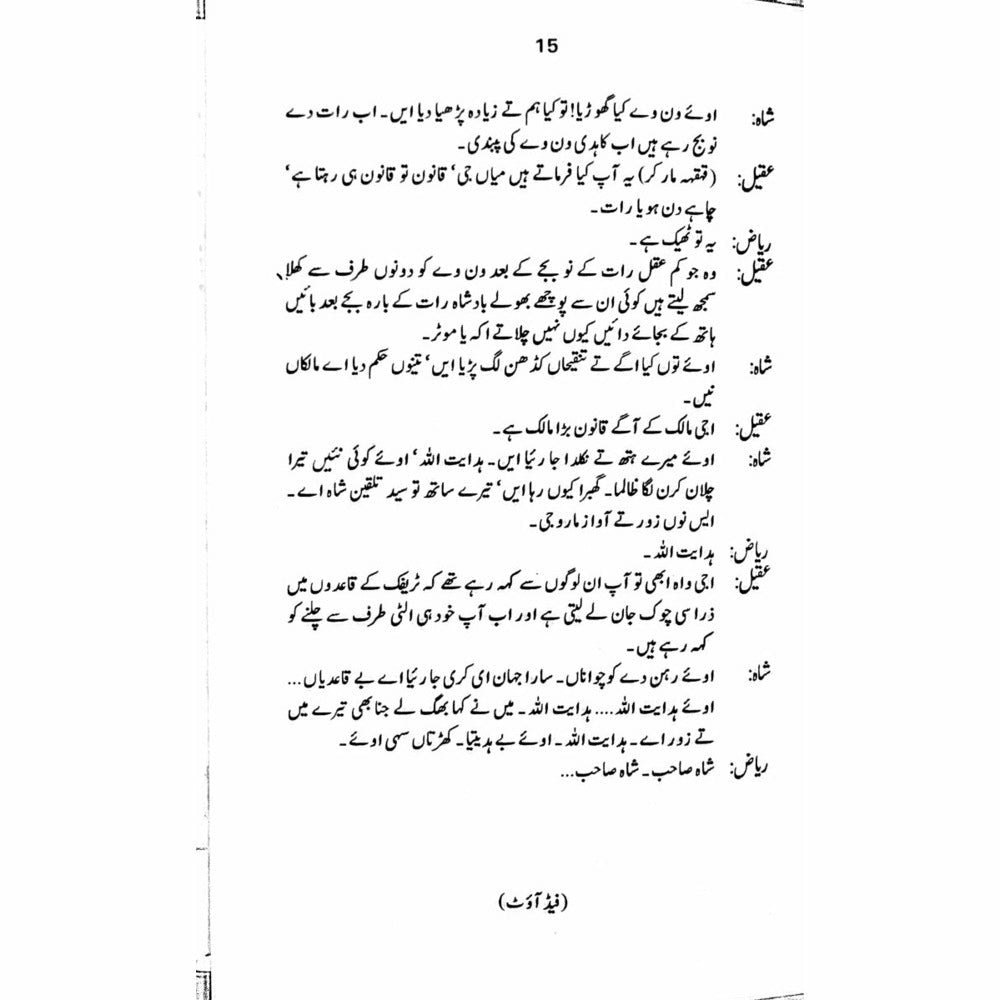 15
شاہ: اوئے ون وے کیا گھوڑیا! تو کیا ہم تے زیادہ پڑھیا دیا ایں۔ اب رات دے
نو بج رہے ہیں اب کاہدی ون وے کی پبندی۔
عقیل: (قہقہہ مار کر) یہ آپ کیا فرماتے ہیں میاں جی‘ قانون تو قانون ہی رہتا ہے‘
چاہے دن ہو یا رات۔
ریاض: یہ تو ٹھیک ہے۔
عقیل: وہ جو کم عقل رات کے نو بجے کے بعد ون وے کو دونوں طرف سے کھلا
سمجھ لیتے ہیں کوئی ان سے پوچھے بھولے بادشاہ رات کے بارہ بجے بعد بائیں
ہاتھ کے بجائے دائیں کیوں نہیں چلاتے اکہ یا موٹر۔
شاہ: اوئے توں کیا اگے تے تنقیحاں کڈھن لگ پڑیا ایں‘ تینوں حکم دیا اے مالکاں
نیں۔
عقیل: اجی مالک کے آگے قانون بڑا مالک ہے۔
شاہ: اوئے میرے ہتھ تے نکلدا جا رئیا ایں۔ ہدایت اللہ‘ اوئے کوئی نئیں تیرا
چلان کرن لگا ظالما۔ گھبرا کیوں رہا ایں‘ تیرے ساتھ تو سید تلقین شاہ اے۔
ایس نوں زور تے آواز مارو جی۔
ریاض: ہدایت اللہ۔
عقیل: اجی واہ ابھی تو آپ ان لوگوں سے کہہ رہے تھے کہ ٹریفک کے قاعدوں میں
ذرا سی چوک جان لے لیتی ہے اور اب آپ خود ہی الٹی طرف سے چلنے کو
کہہ رہے ہیں۔
شاہ: اوئے رہن دے کوچواناں۔ سارا جہان ای کری جا رئیا اے بے قاعدیاں...
اوئے ہدایت اللہ.... ہدایت اللہ۔ میں نے کہا بھگ لے جنا بھی تیرے میں
تے زور اے۔ ہدایت اللہ۔ اوئے بے ہدیتیا۔ کھڑتاں سی اوئے۔
ریاض: شاہ صاحب۔ شاہ صاحب...
(فیڈ آؤٹ)